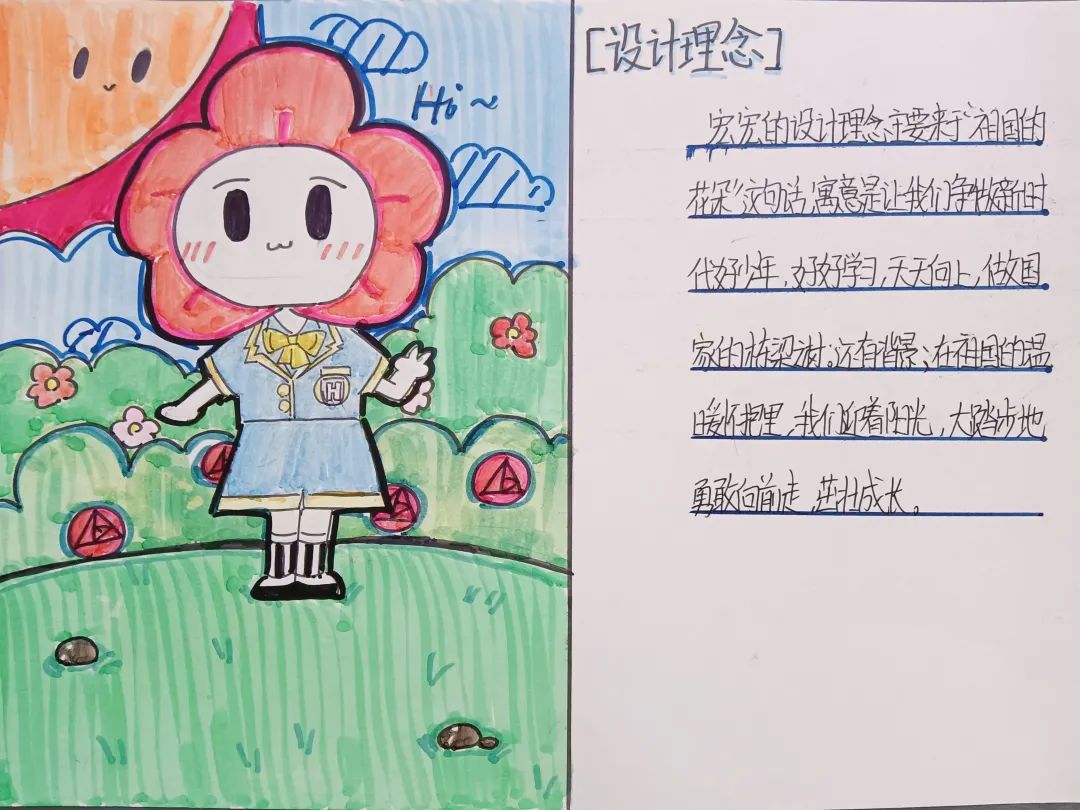 Hi~
H
[设计理念]
宏宏的设计理念主要来于"祖国的
花朵"这句话,寓意是让我们争做新时
代好少年,好好学习,天天向上,做国
家的栋梁之材。还有背景;在祖国的温
暖怀抱里,我们迎着阳光,大踏步地
勇敢向前走,茁壮成长。